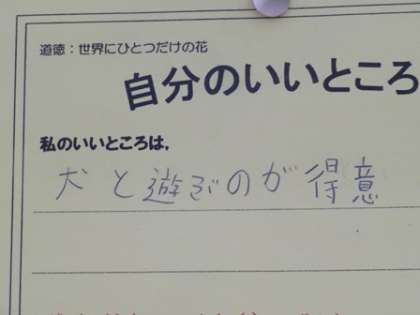 道徳：世界にひとつだけの花
自分のいいところ
私のいいところは，
犬と遊ぶのが得意